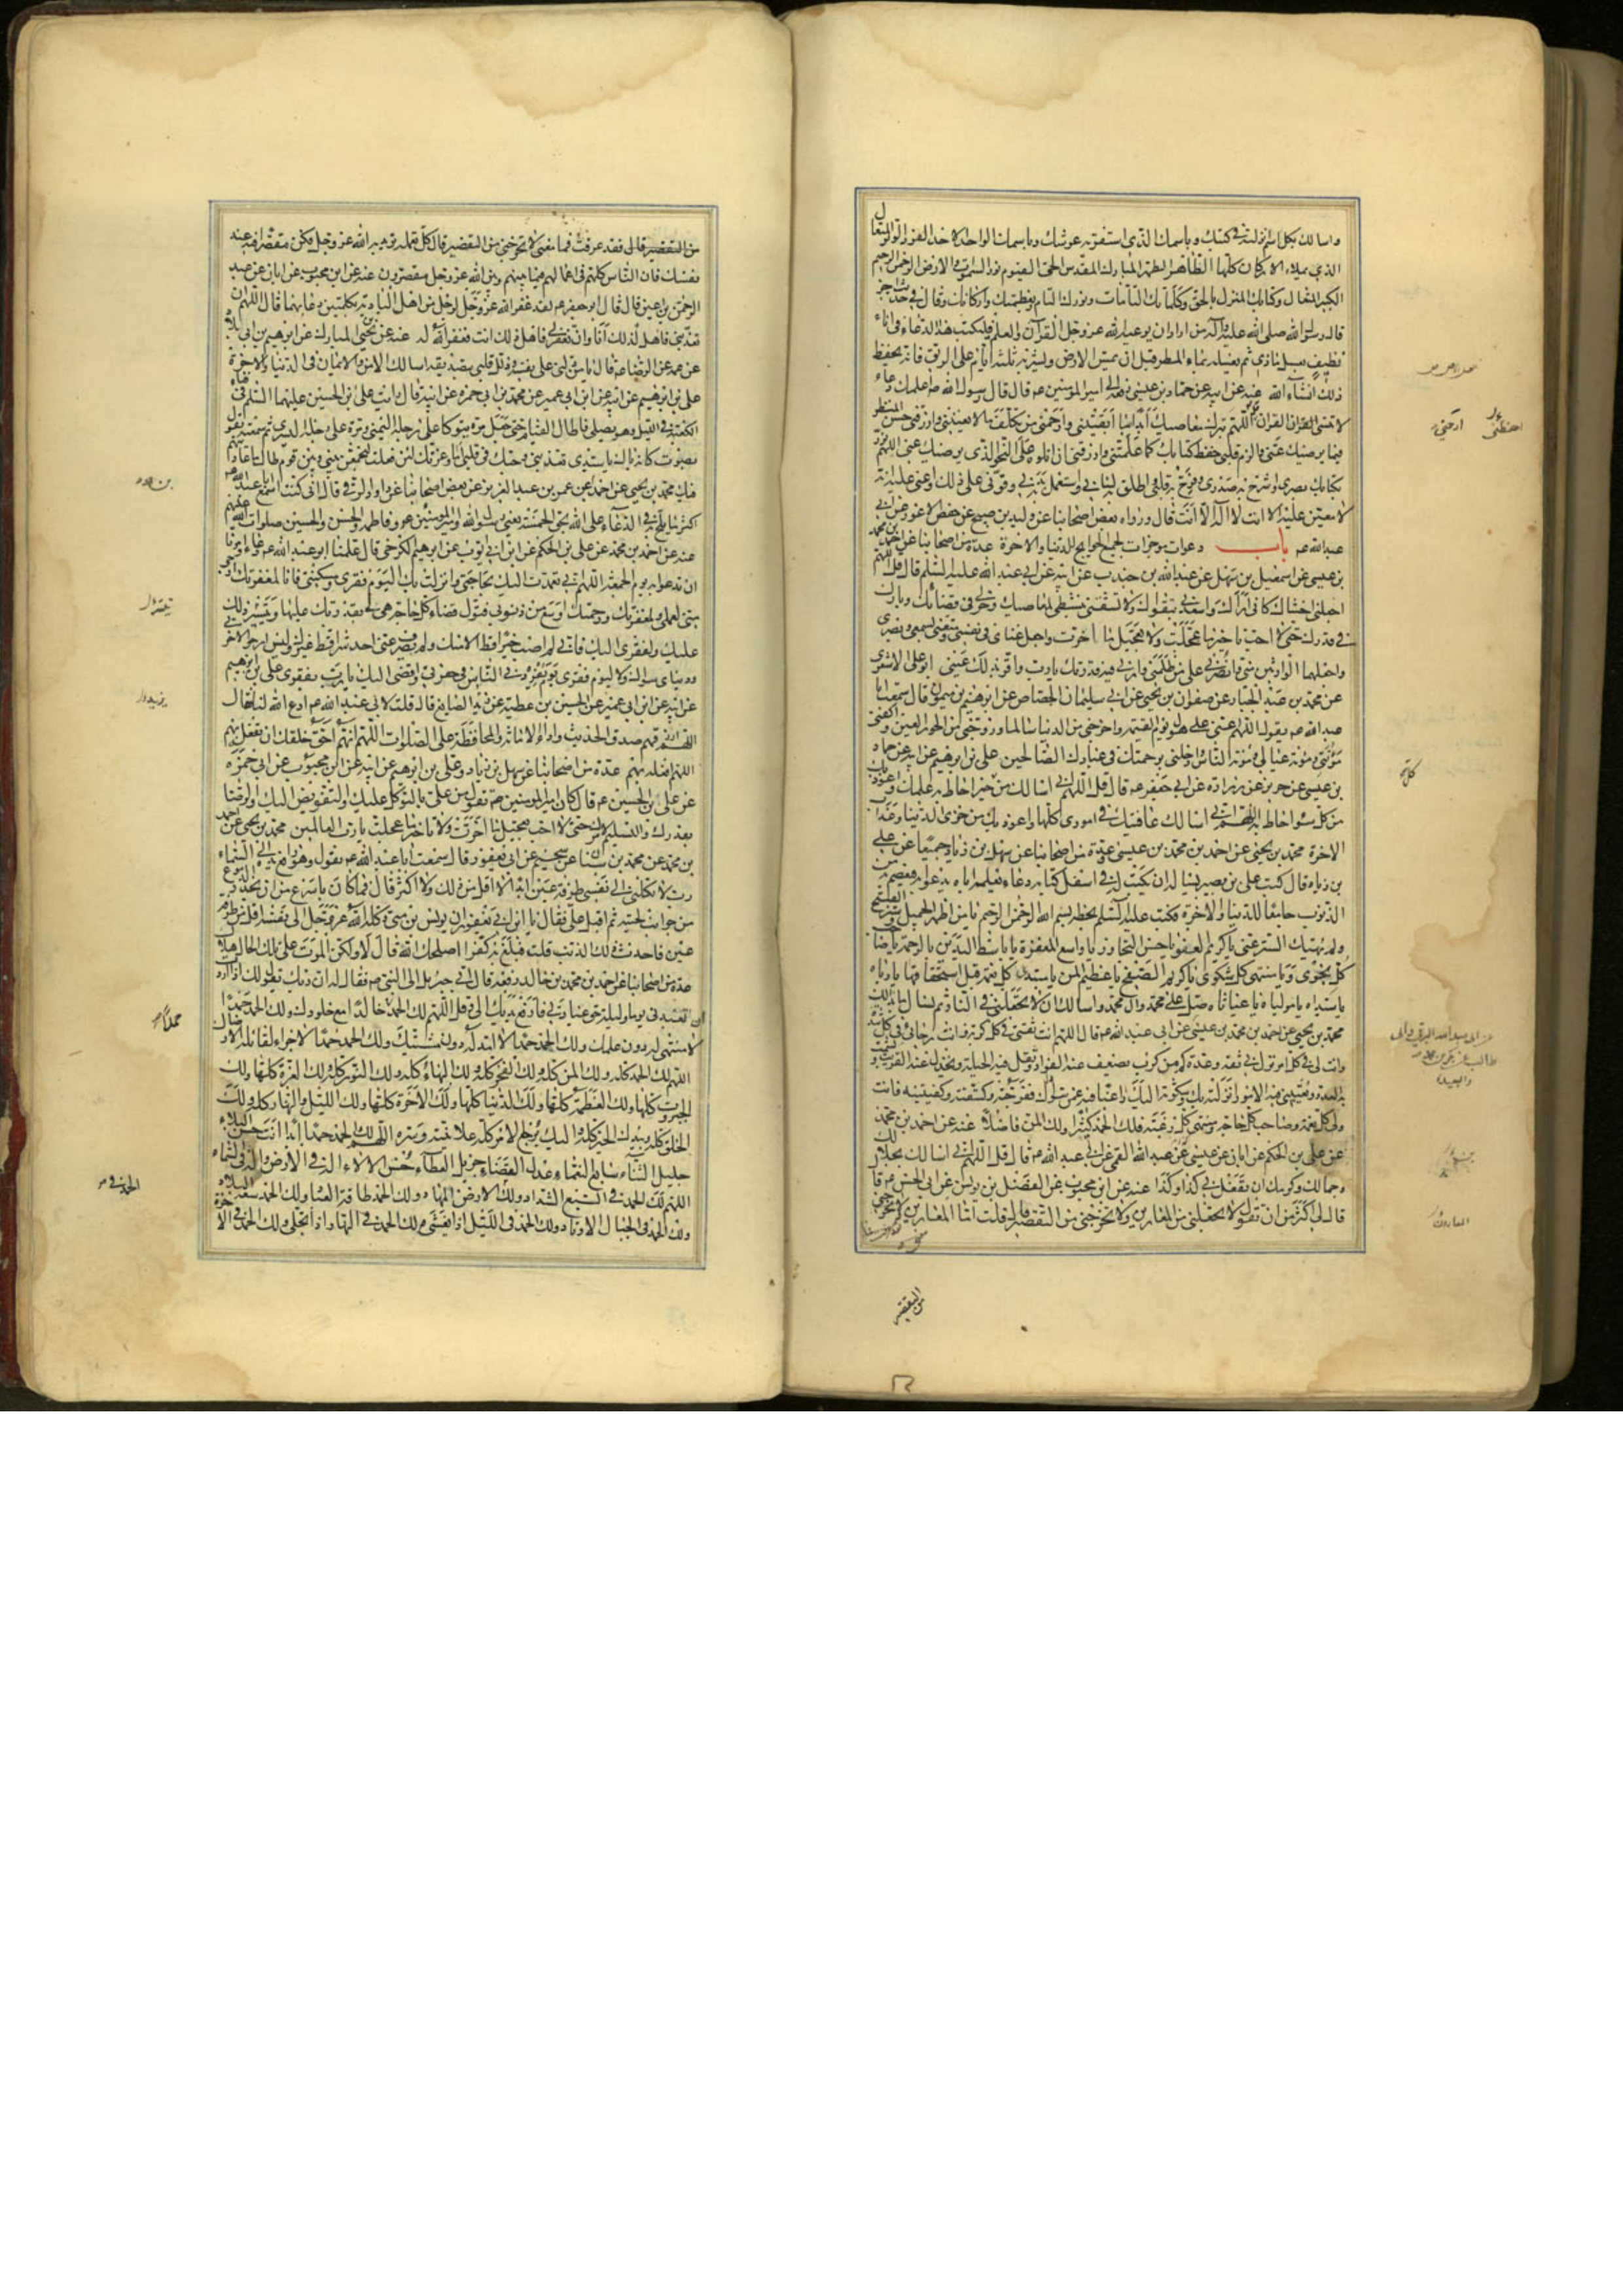 واسالك بكل اسم انزلته في كتبك وباسمك الذي استقر به عرشك وباسمك الواحد الاحد الفرد الوتر المتعال
الذي يملاء الاركان كلها الطاهر الطهر المبارك المقدس الحي القيوم نور السموات والارض الرحمن الرحيم
الكبير المتعال وكتابك المنزل بالحق وكلماتك التامات ونورك التام وبعظمتك واركانك وقال في حديث اخر
قال رسول الله صلى الله عليه وآله من اراد ان يوعيه الله عز وجل القرآن والعلم فليكتب هذا الدعاء في اناء
نظيف بعسل ماذي ثم يغسله بماء المطر قبل ان يمس الارض ويشربه ثلثة ايام على الريق فانه يحفظ
ذلك انشاء الله عنه عن ابيه عن حماد بن عيسى رفعه الى امير المؤمنين عم قال قال رسول الله ص اعلمك دعاء
لا تنسى القرآن اللهم ارحمني بترك معاصيك ابدا ما ابقيتني وارحمني من تكلف ما لا يعنيني وارزقني حسن المنظر
فيما يرضيك عني والزم قلبي حفظ كتابك كما علمتني وارزقني ان اتلوه على النحو الذي يرضيك عني اللهم نور
بكتابك بصري واشرح به صدري وفرح به قلبي واطلق به لساني واستعمل به بدني وقوني على ذلك واعني عليه انه
لا معين عليه الا انت لا اله الا انت قال ورواه بعض اصحابنا عن وليد بن صبيح عن حفص الاعور عن ابي
عبد الله عم باب دعوات موجزات لجميع الحوائج للدنيا والاخرة عدة من اصحابنا عن احمد بن محمد
بن عيسى عن اسمعيل بن سهل عن عبد الله بن جندب عن ابيه عن ابي عبد الله عليه السلم قال قل اللهم
اجعلني اخشاك كاني اراك واسعدني بتقواك ولا تشقني بنشطي لمعاصيك وخر لي في قضائك وبارك
لي في قدرك حتى لا احب تاخير ما عجلت ولا تعجيل ما اخرت واجعل غناي في نفسي ومتعني بسمعي وبصري
واجعلهما الوارثين مني وانصرني على من ظلمني وارني فيه قدرتك يا رب واقر بذلك عيني ابو علي الاشعري
عن محمد بن عبد الجبار عن صفوان بن يحيى عن ابي سليمان الجصاص عن ابرهيم بن ميمون قال سمعت ابا
عبد الله عم يقول اللهم اعني على هول يوم القيمة واخرجني من الدنيا سالما وزوجني من الحور العين واكفني
مؤنتي ومؤنة عيالي ومؤنة الناس وادخلني برحمتك في عبادك الصالحين علي بن ابرهيم عن ابيه عن حماد
بن عيسى عن حريز عن زرارة عن ابي جعفر عم قال قل اللهم اني اسالك من كل خير احاط به علمك واعوذ بك
من كل سوء احاط به علمك اللهم اني اسالك عافيتك في اموري كلها واعوذ بك من خزي الدنيا وعذاب
الاخرة محمد بن يحيى عن احمد بن محمد بن عيسى وعدة من اصحابنا عن سهل بن زياد جميعا عن علي
بن زياد قال كتب علي بن بصير يساله ان يكتب له في اسفل كتابه دعاء يعلمه اياه يدعو به فيعصم من
الذنوب جامعا للدنيا والاخرة فكتب عليه السلم بخطه بسم الله الرحمن الرحيم يا من اظهر الجميل وستر القبيح
ولم يهتك الستر عني يا كريم العفو يا حسن التجاوز يا واسع المغفرة يا باسط اليدين بالرحمة يا صاحب
كل نجوى ويا منتهى كل شكوى يا كريم الصفح يا عظيم المن يا مبتدئ كل نعمة قبل استحقاقها يا رباه
يا سيداه يا مولياه يا غياثاه صل على محمد وال محمد واسالك ان لا تجعلني في النار ثم تسال ما بدا لك
محمد بن يحيى عن احمد بن محمد بن عيسى عن ابي عبد الله عم قال اللهم انت ثقتي في كل كربة وانت رجائي في كل شدة
وانت لي في كل امر نزل بي ثقة وعدة كم من كرب يضعف عنه الفؤاد وتقل فيه الحيلة ويخذل عنه القريب
به العدو وتعييني فيه الامور انزلته بك وشكوته اليك راغبا فيه عمن سواك ففرجته وكشفته وكفيتنيه فانت
ولي كل نعمة وصاحب كل حاجة ومنتهى كل رغبة فلك الحمد كثيرا ولك المن فاضلا عنه عن احمد بن محمد
عن علي بن الحكم عن ابان عن عيسى بن عبد الله القمي عن ابي عبد الله عم قال قل اللهم اني اسالك بجلالك
وجمالك وكرمك ان تفعل بي كذا وكذا عنه عن ابن محبوب عن الفضل بن يونس عن ابي الحسن عم قال
قال لي اكثر من ان تقول لا تجعلني من المعارين ولا تخرجني من التقصير قال قلت اما المعارين
من التقصير
من التقصير قال فقد عرفت فما معنى لا تخرجني من التقصير قال كل عمل تعمله تريد به الله عز وجل فكن مقصرا فيه عند
نفسك فان الناس كلهم في اعمالهم فيما بينهم وبين الله عز وجل مقصرون عنه عن ابن محبوب عن ابان عن عبد
الرحمن بن اعين قال قال ابو جعفر عم لقد غفر الله عز وجل لرجل من اهل البادية بكلمتين دعا بهما قال اللهم ان
تعذبني فاهل لذلك انا وان تغفر لي فاهل لذلك انت فغفر الله له عنه عن يحيى بن المبارك عن ابرهيم بن ابي البلاد
عن عمه عن الرضا عم قال يا من دلني على نفسه وذلل قلبي بتصديقه اسالك الامن والايمان في الدنيا والاخرة
علي بن ابرهيم عن ابيه عن ابن ابي عمير عن محمد بن ابي حمزه عن ابيه قال رايت علي بن الحسين عليهما السلم في فناء
الكعبة في الليل وهو يصلي فاطال القيام حتى جعل مرة يتوكا على رجله اليمنى ومرة على رجله اليسرى ثم سمعته يقول
بصوت كانه باك يا سيدي تعذبني وحبك في قلبي اما وعزتك لئن فعلت لتجمعن بيني وبين قوم طال ما عاديتهم
فيك محمد بن يحيى عن احمد عن عمر بن عبد العزيز عن بعض اصحابنا عن داود الرقي قال اني كنت اسمع ابا عبد الله عم
اكثر ما يلح به في الدعاء على الله بحق الخمسة يعني رسول الله وامير المؤمنين عم وفاطمة والحسن والحسين صلوات الله عليهم
عنه عن احمد بن محمد عن علي بن الحكم عن ابن ابي ايوب عن ابرهيم الكرخي قال علمنا ابو عبد الله عم دعاء وامرنا
ان ندعو به يوم الجمعة اللهم اني تعمدت اليك بحاجتي وانزلت بك اليوم فقري ومسكنتي فانا لمغفرتك ارجى
مني لعملي ولمغفرتك ورحمتك اوسع من ذنوبي فتول قضاء كل حاجة هي لي بقدرتك عليها وتيسير ذلك
عليك ولفقري اليك فاني لم اصب خيرا قط الا منك ولم يصرف عني احد شرا قط غيرك وليس ارجو لاخرتي
ودنياي سواك ولا ليوم فقري يوم يفردني الناس في حفرتي وافضي اليك يا رب بفقري علي بن ابرهيم
عن ابيه عن ابن ابي عمير عن الحسين بن عطية عن زيد الصايغ قال قلت لابي عبد الله عم ادع الله لنا فقال
اللهم ارزقهم صدق الحديث واداء الامانة والمحافظة على الصلوات اللهم انهم احق خلقك ان تفعله بهم
اللهم افعله بهم عدة من اصحابنا عن سهل بن زياد وعلي بن ابرهيم عن ابيه عن ابن محبوب عن ابي حمزه
عن علي بن الحسين عم قال كان امير المؤمنين عم يقول اللهم من علي بالتوكل عليك والتفويض اليك والرضا
بقدرك والتسليم لامرك حتى لا احب تعجيل ما اخرت ولا تاخير ما عجلت يا رب العالمين محمد بن يحيى عن احمد
بن محمد عن محمد بن سنان عن سحيم عن ابن ابي يعفور قال سمعت ابا عبد الله عم يقول وهو رافع يده الى السماء
رب لا تكلني الى نفسي طرفة عين ابدا لا اقل من ذلك ولا اكثر قال فما كان باسرع من ان تحدر الدموع
من جوانب لحيته ثم اقبل علي فقال يا ابن ابي يعفور ان يونس بن متى وكله الله عز وجل الى نفسه اقل من طرفة
عين فاحدث ذلك الذنب قلت فبلغ به كفرا اصلحك الله قال لا ولكن الموت على تلك الحال هلاك
عدة من اصحابنا عن احمد بن محمد بن خالد رفعه قال اتى جبريل الى النبي ص فقال له ان ربك يقول لك اذا اردت
ان تعبدني يوما وليلة حق عبادتي فارفع يديك الي وقل اللهم لك الحمد حمدا خالدا مع خلودك ولك الحمد حمدا
لا منتهى له دون علمك ولك الحمد حمدا لا امد له دون مشيتك ولك الحمد حمدا لا جزاء لقائله الا رضاك
اللهم لك الحمد كله ولك المن كله ولك الفخر كله ولك البهاء كله ولك النور كله ولك العزة كلها ولك
الجبروت كلها ولك العظمة كلها ولك الدنيا كلها ولك الاخرة كلها ولك الليل والنهار كله ولك
الخلق كله وبيدك الخير كله واليك يرجع الامر كله علانيته وسره اللهم لك الحمد حمدا ابدا انت حسن البلاء
جليل الثناء سابغ النعماء عدل القضاء جزيل العطاء حسن الالاء اله في الارض واله في السماء
اللهم لك الحمد في السبع الشداد ولك الحمد في الارض المهاد ولك الحمد طاقة العباد ولك الحمد سعة البلاد
ولك الحمد في الجبال الاوتاد ولك الحمد في الليل اذا يغشى ولك الحمد في النهار اذا تجلى ولك الحمد في الاخرة